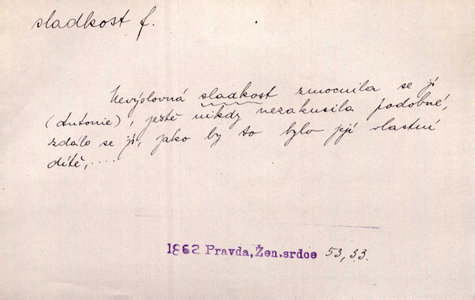 sladkost f.
Nevýslovná sladkost zmocnila se jí
(Antonie), ještě nikdy nezakusila podobné,
zdálo se jí, jako by to bylo její vlastní
dítě,....
1862 Pravda, Žen. srdce 53, 33.